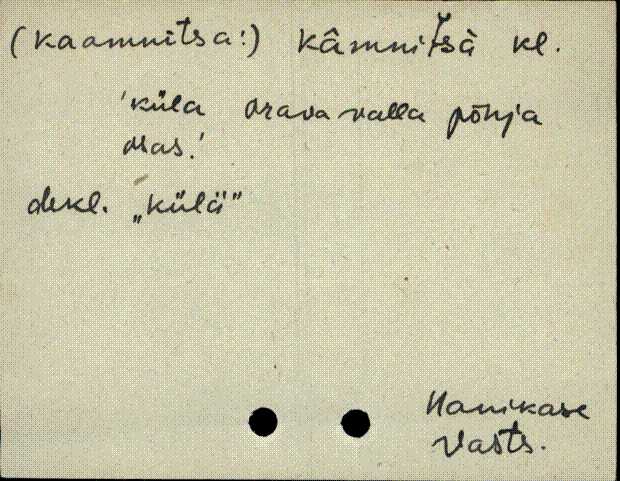 (kaamnitsa:) kâmnitsà kl.
'küla orava valla põhja
osas.'
dekl. „külä"
Hanikase
Vasts.